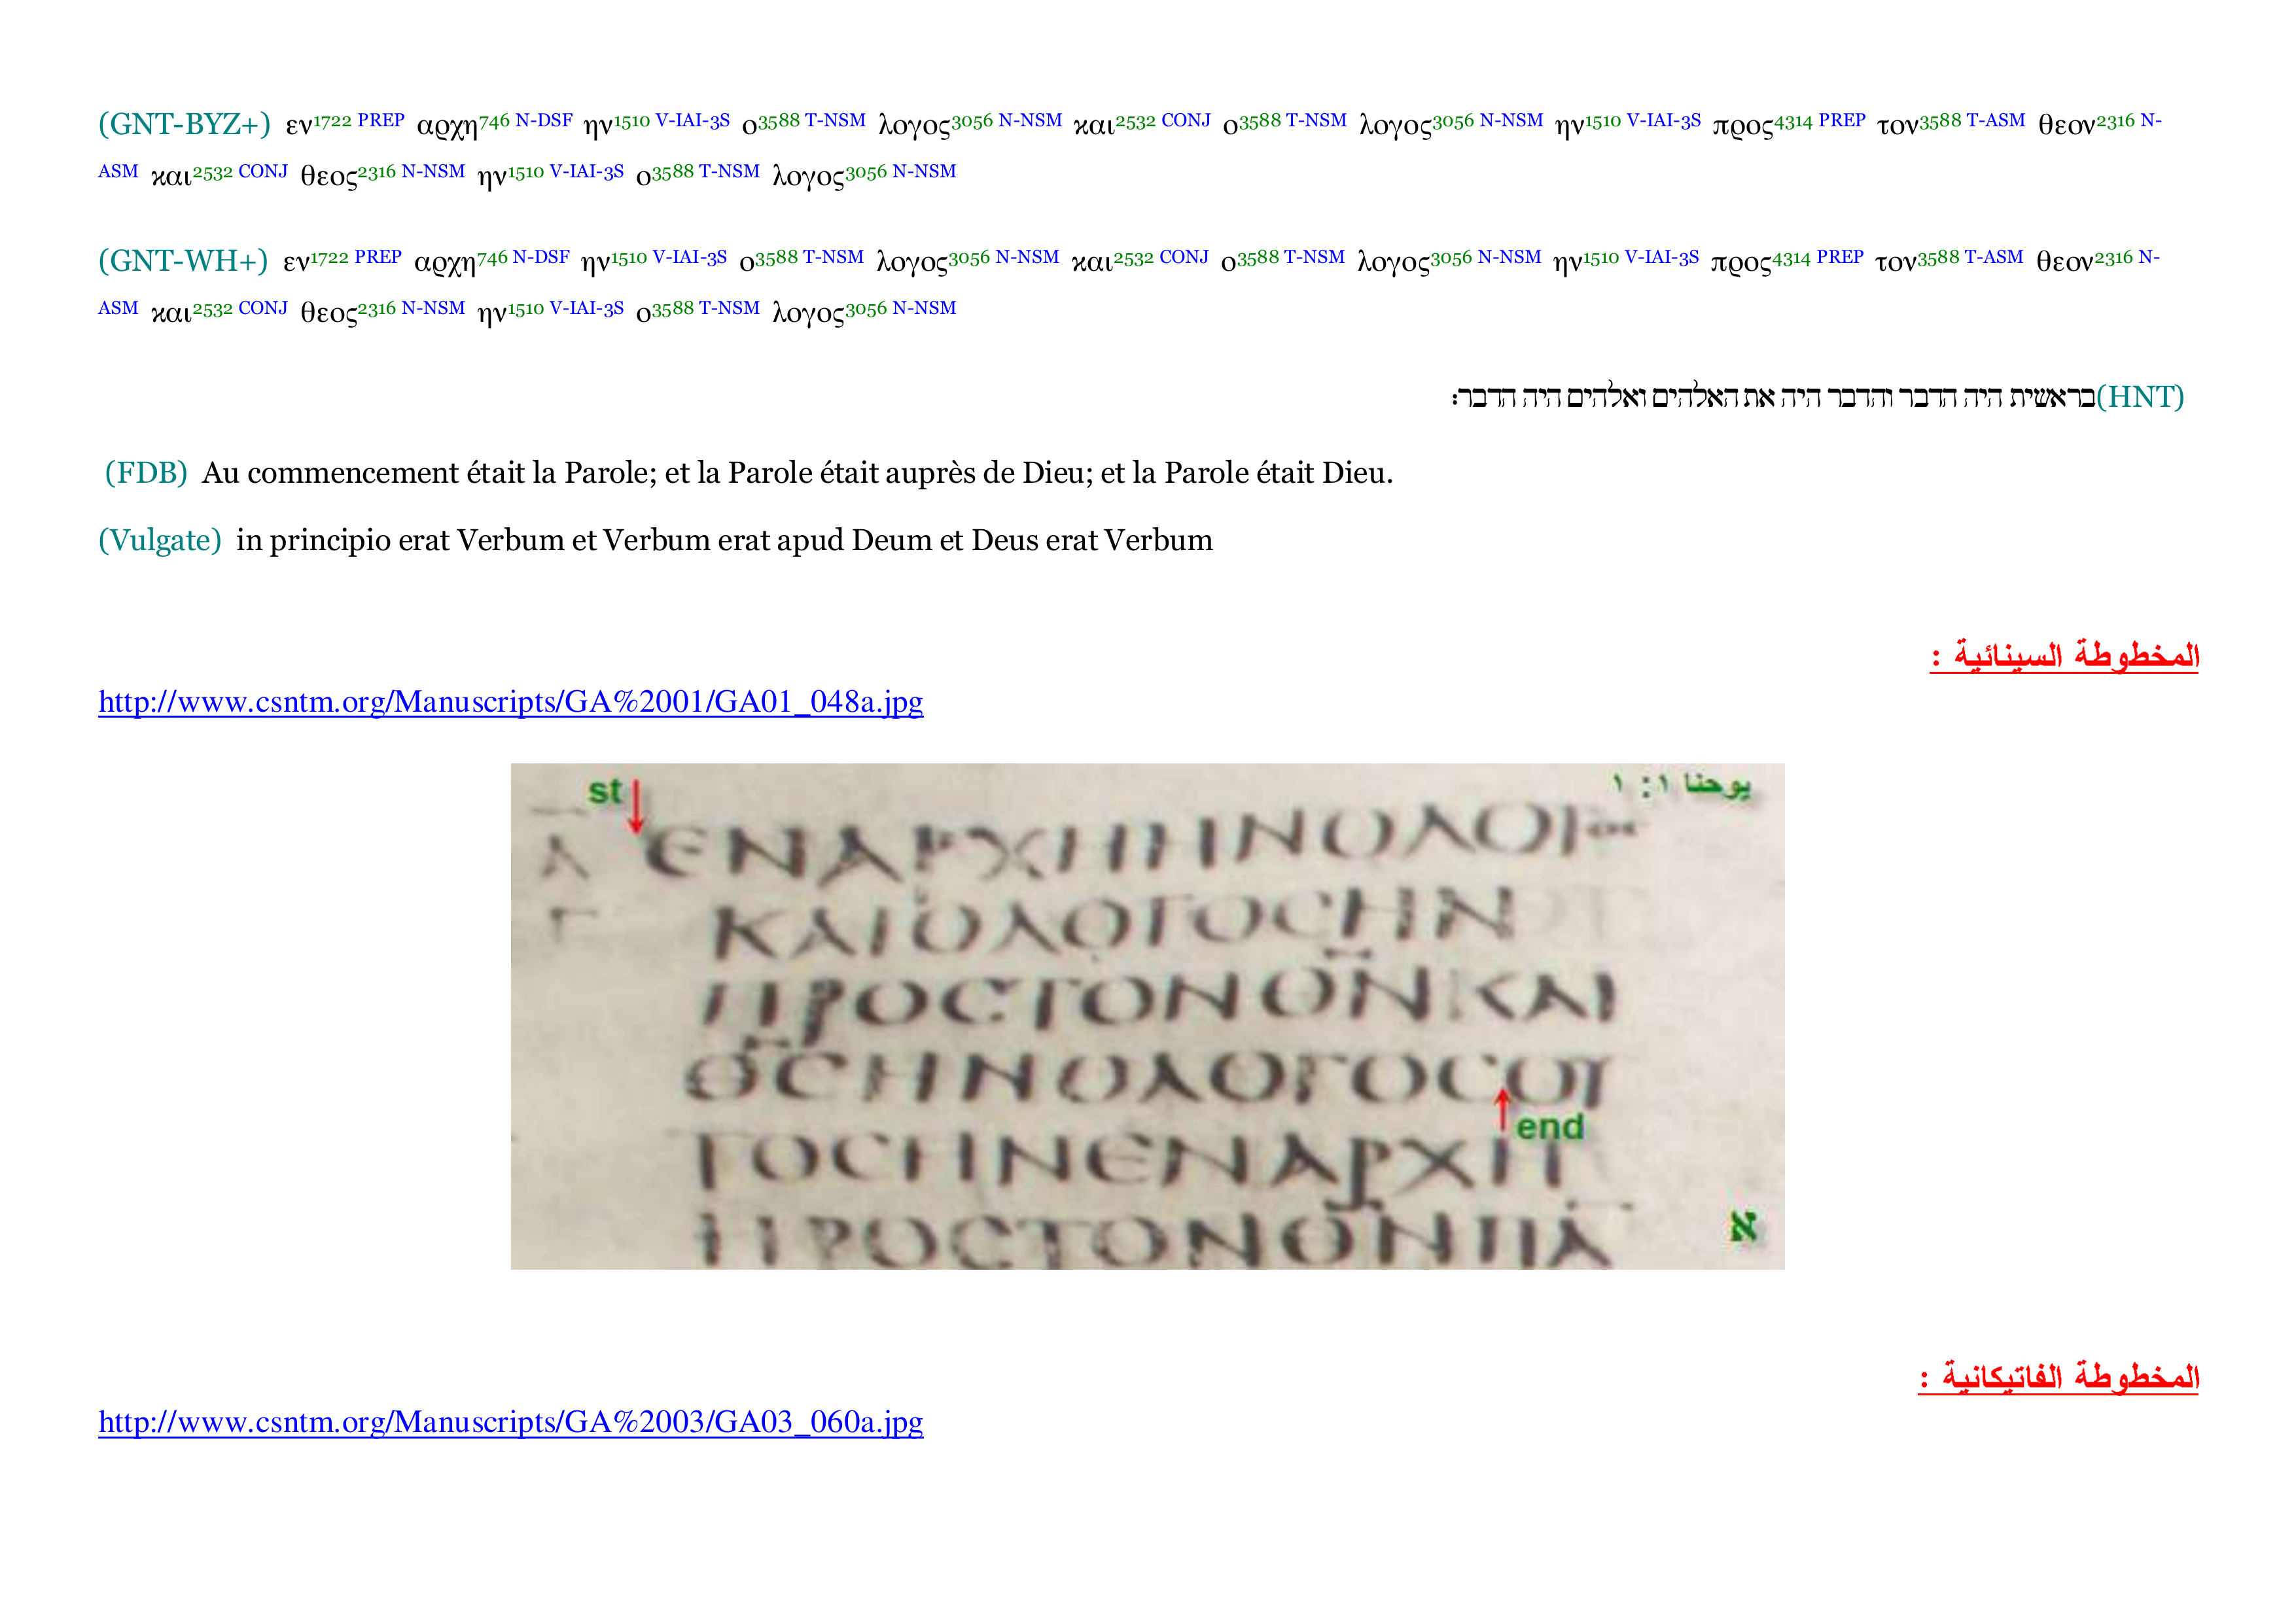 (GNT-BYZ+) εν1722 PREP αρχη746 N-DSF ην1510 V-IAI-3S ο3588 T-NSM λογος3056 N-NSM και2532 CONJ ο3588 T-NSM λογος3056 N-NSM ην1510 V-IAI-3S προς4314 PREP τον3588 T-ASM θεον2316 N-
ASM και2532 CONJ θεος2316 N-NSM ην1510 V-IAI-3S ο3588 T-NSM λογος3056 N-NSM
(GNT-WH+) εν1722 PREP αρχη746 N-DSF ην1510 V-IAI-3S ο3588 T-NSM λογος3056 N-NSM και2532 CONJ ο3588 T-NSM λογος3056 N-NSM ην1510 V-IAI-3S προς4314 PREP τον3588 T-ASM θεον2316 N-
ASM και2532 CONJ θεος2316 N-NSM ην1510 V-IAI-3S ο3588 T-NSM λογος3056 N-NSM
(HNT) בראשית היה הדבר והדבר היה את האלהים ואלהים היה הדבר׃
(FDB) Au commencement était la Parole; et la Parole était auprès de Dieu; et la Parole était Dieu.
(Vulgate) in principio erat Verbum et Verbum erat apud Deum et Deus erat Verbum
المخطوطة السينائية :
http://www.csntm.org/Manuscripts/GA%2001/GA01_048a.jpg
st
يوحنا ١: ١
Α ΕΝΑΡΧΗΗΝΟΛΟΓΟϹ
Γ ΚΑΙΟΛΟΓΟϹΗΝ
ΠΡΟϹΤΟΝΘΝΚΑΙ
ΘϹΗΝΟΛΟΓΟϹΟΥ
end
ΤΟϹΗΝΕΝΑΡΧΗ
ΠΡΟϹΤΟΝΘΝΠΑ
א
المخطوطة الفاتيكانية :
http://www.csntm.org/Manuscripts/GA%2003/GA03_060a.jpg